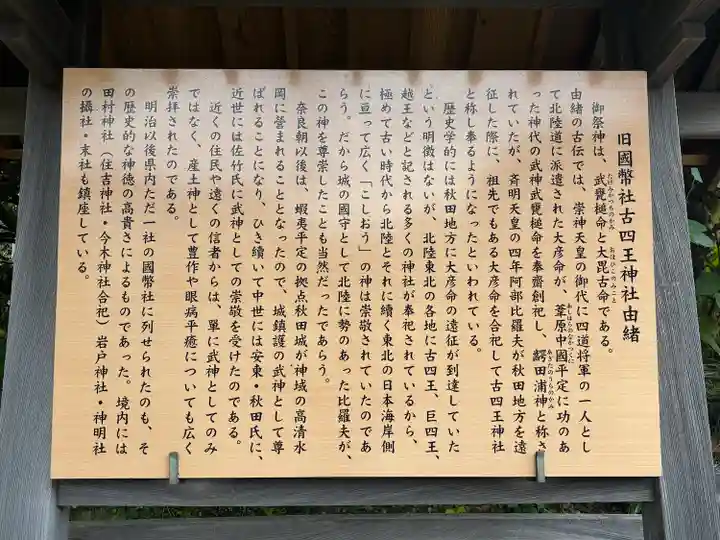 旧國幣社古四王神社由緒
御祭神は、武甕槌命と大毘古命である。
由緒の古伝では、崇神天皇の御代に四道将軍の一人とし
て北陸道に派遣された大彦命が、葦原中國平定に功のあ
った神代の武神武甕槌命を奉齋創祀し、齶田浦神と称さ
れていたが、斉明天皇の四年阿部比羅夫が秋田地方を遠
征した際に、祖先でもある大彦命を合祀して古四王神社
と称し奉るようになったといわれている。
歴史学的には秋田地方に大彦命の遠征が到達していた
という明徴はないが、北陸東北の各地に古四王、巨四王、
越王などと記される多くの神社が奉祀されているから、
極めて古い時代から北陸とそれに續く東北の日本海岸側
に亘って広く「こしおう」の神は崇敬されていたのであ
らう。だから城の國守として北陸に勢のあった比羅夫が、
この神を尊崇したことも当然だったであらう。
奈良朝以後は、蝦夷平定の拠点秋田城が神域の高清水
岡に営まれることとなったので、城鎮護の武神として尊
ばれることになり、ひき續いて中世には安東・秋田氏に、
近世には佐竹氏に武神としての崇敬を受けたのである。
近くの住民や遠くの信者からは、單に武神としてのみ
ではなく、産土神として豊作や眼病平癒についても広く
崇拝されたのである。
明治以後県内ただ一社の國幣社に列せられたのも、そ
の歴史的な神徳の高貴さによるものであった。境内には
田村神社（住吉神社・今木神社合祀）岩戸神社・神明社
の攝社・末社も鎮座している。